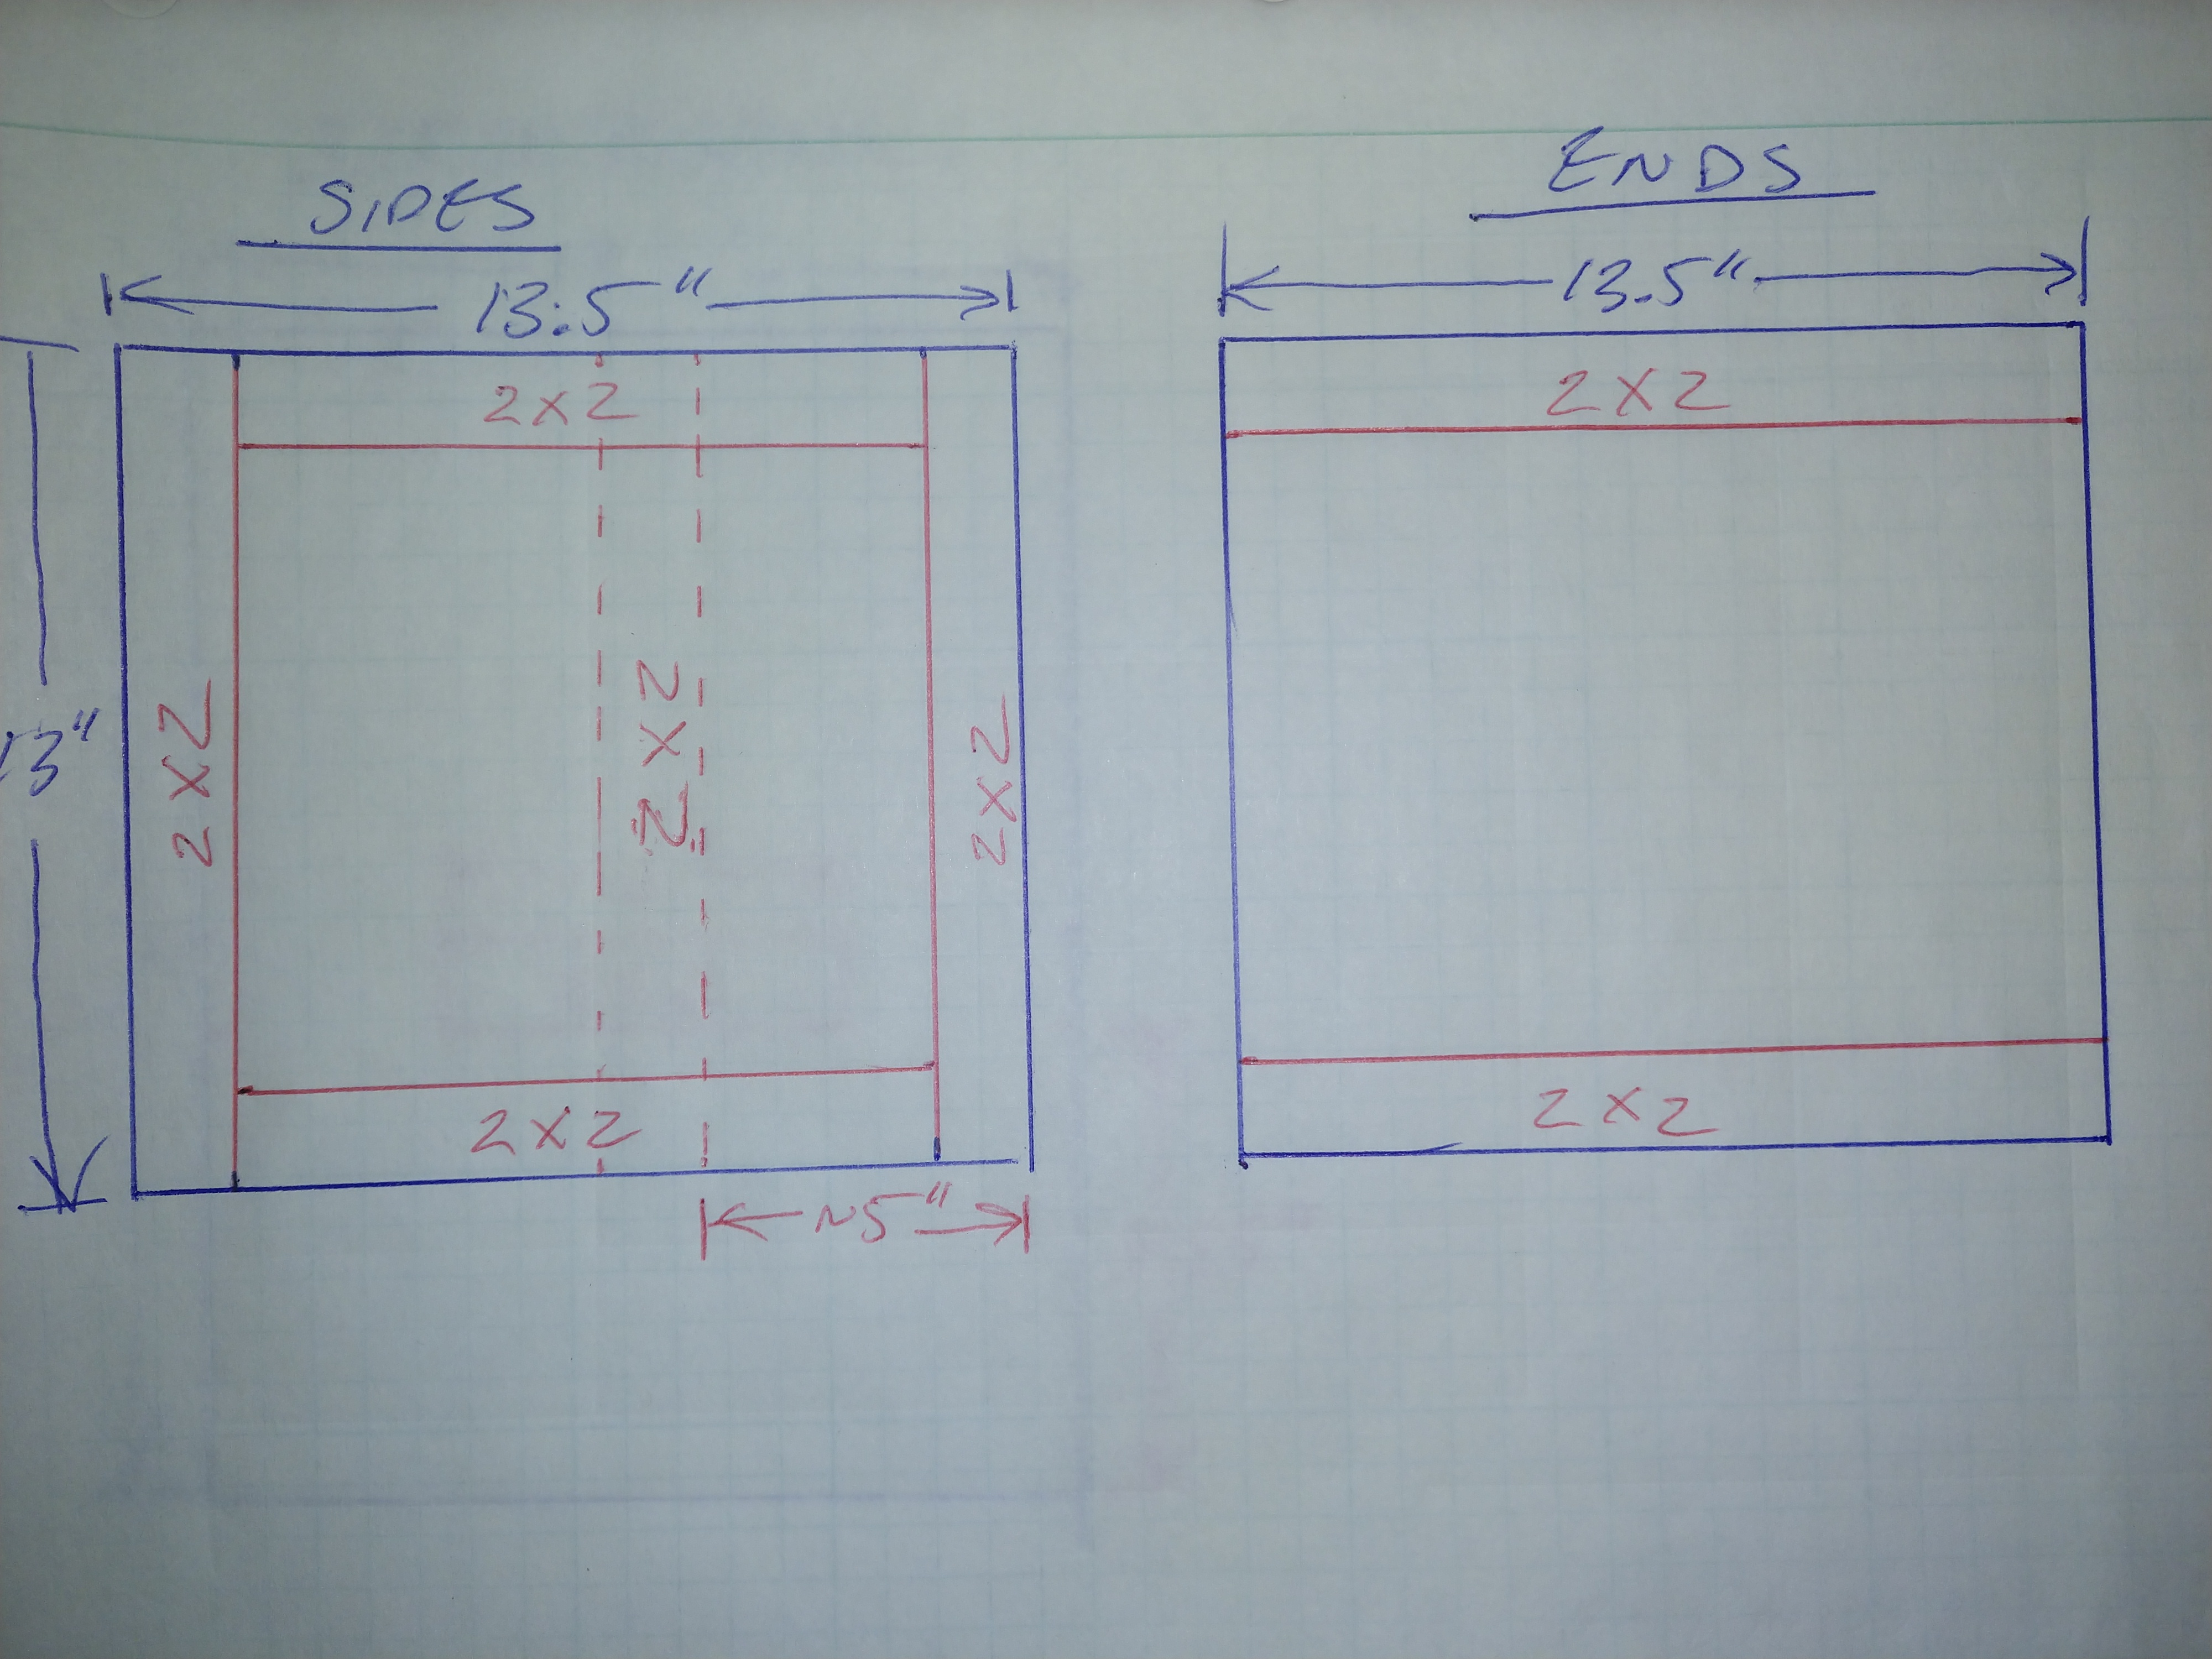 SIDES
13.5"
2x2
2x2
2x2
2x2
2x2
13"
~5"
ENDS
13.5"
2x2
2x2